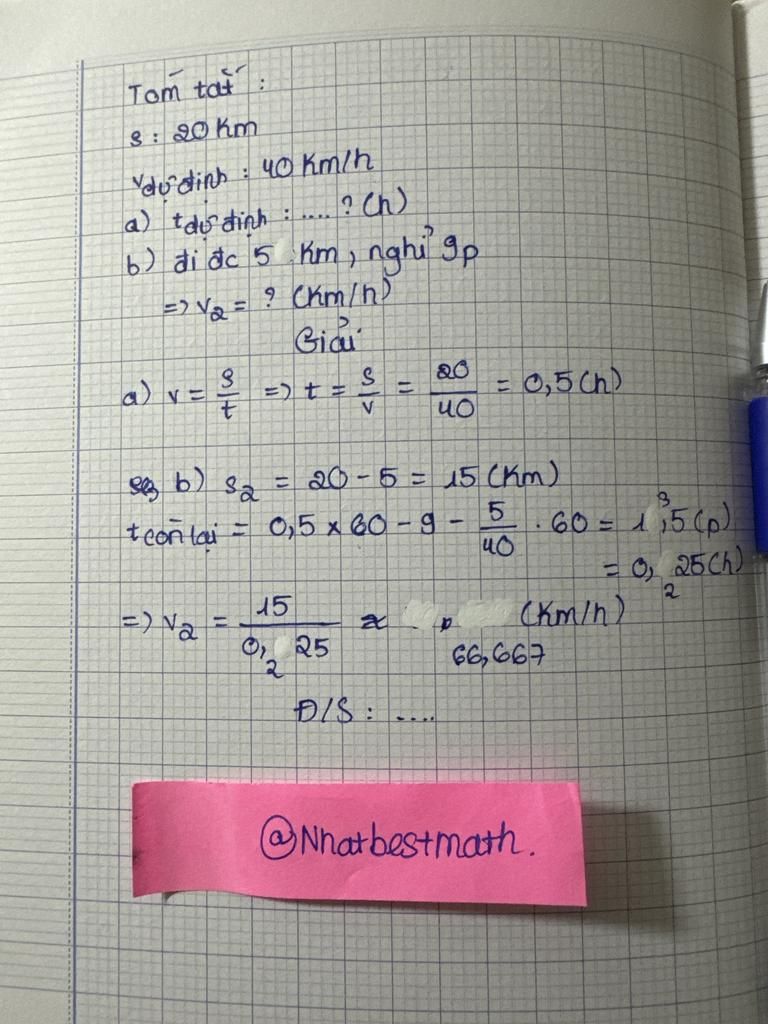 Tóm tắt :
s : 20 Km
v dự định : 40 Km/h
a) t dự định : .... ? (h)
b) đi đc 5 Km, nghỉ 9p
=> v2 = ? (Km/h)
Giải
a) v = s/t => t = s/v = 20/40 = 0,5 (h)
b) s2 = 20 - 5 = 15 (Km)
t còn lại = 0,5 x 60 - 9 - 5/40 . 60 = 13,5 (p)
= 0,225 (h)
=> v2 = 15/0,225 ≈ 66,667 (Km/h)
Đ/S : ....
@Nhatbestmath.